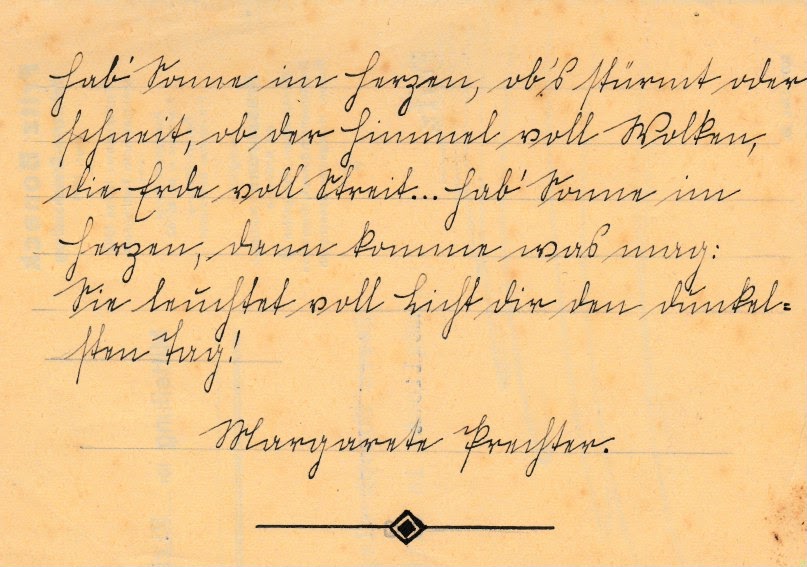 Hab' Sonne im Herzen, ob's stürmt oder
schneit, ob der Himmel voll Wolken,
die Erde voll Streit... Hab' Sonne im
Herzen, dann komme was mag:
Sie leuchtet voll Licht dir den dunkel=
sten Tag!
Margarete Prechter.